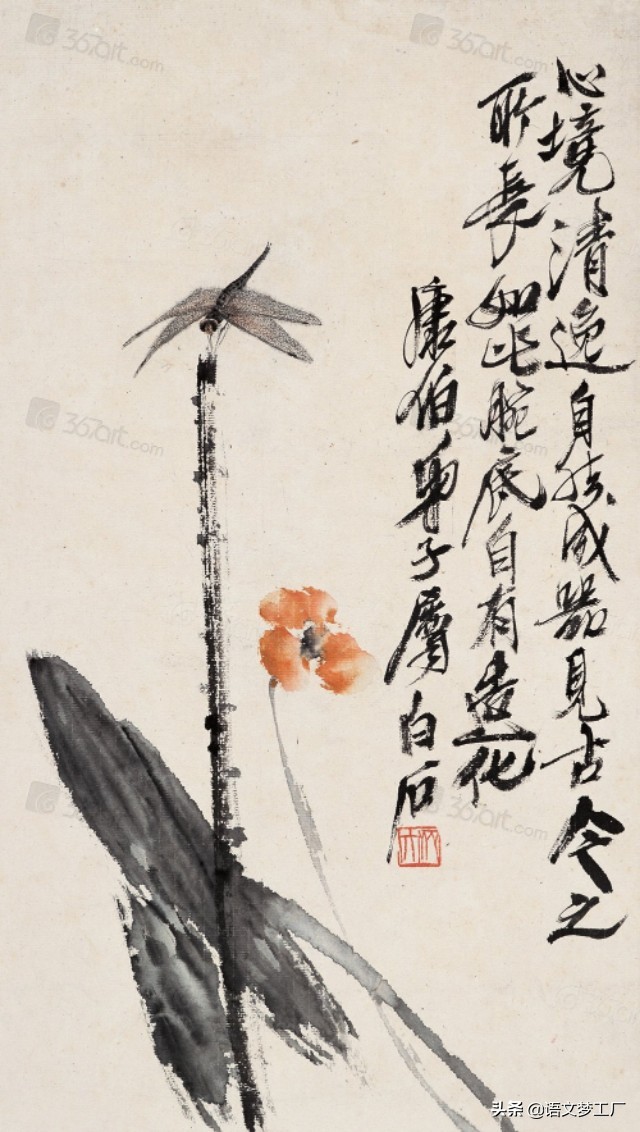 心境清逸自然成器見古今之
所長如此腕底自有造化
康伯弟子屬白石
367art.com
367art.com
367art.com
367art.com
367art.com
头条 @语文梦工厂